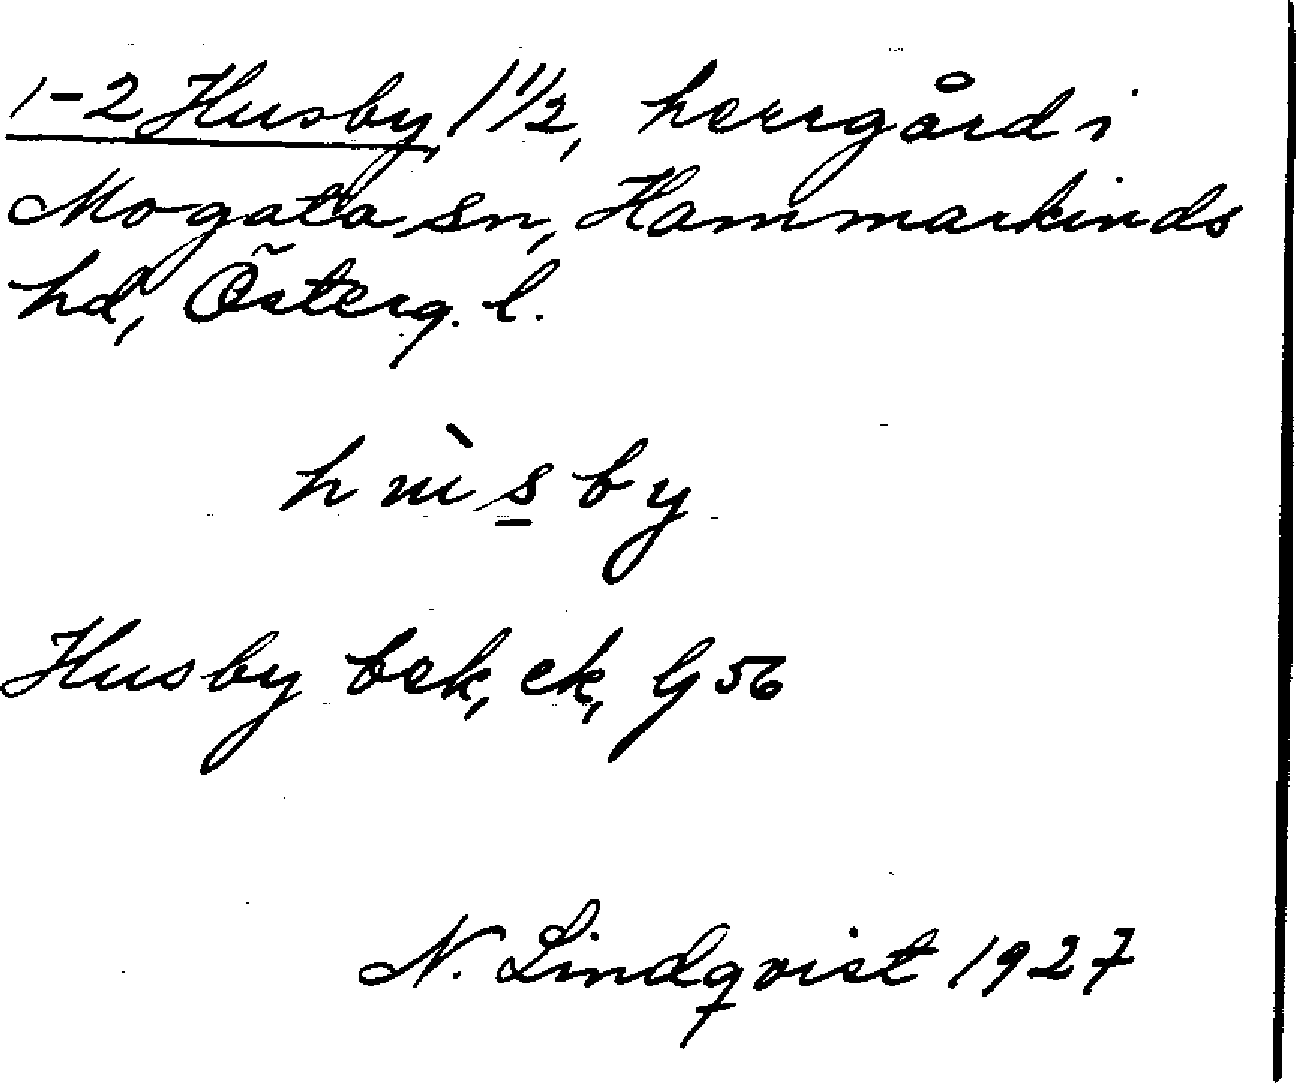 1-2 Husby, 1 1/2, herrgård i
Mogata sn, Hammarkinds
hd, Österg. l.
hùsby
Husby bek, ek, G 56
N. Lindqvist 1927